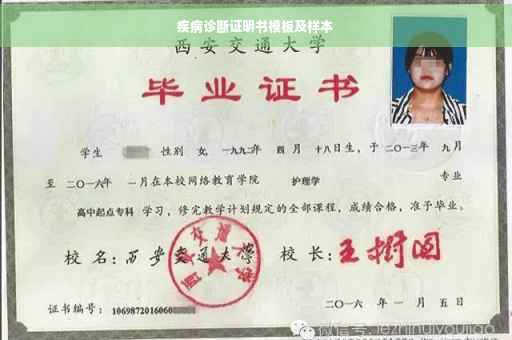 疾病诊断证明书模板及样本
西安交通大学
毕业证书
学生 性别 女, 一九九二年 四月 十八日生, 于二〇一三年 九月
至 二〇一六年 一月在本校网络教育学院 护理学 专业
高中起点专科 学习, 修完教学计划规定的全部课程, 成绩合格, 准予毕业。
校名: 西安交通大学 校长: 王树国
西安交通大学
证书编号: 1069872016060
二〇一六年 一月 五日
微信号: lezhinuyoujiao